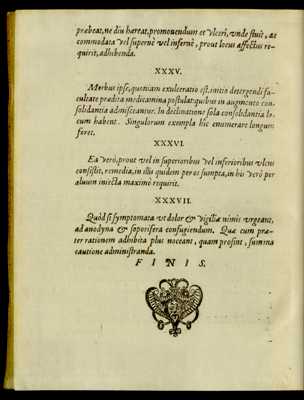 præbeat, ne diu hæreat, promovendum et ulceri, unde fluit, ac
commodata vel supernè vel infernè, prout locus affectus re-
quirit, adhibenda.
XXXV.
Morbus ipse, quoniam exulceratio est, initio detergendi fa-
cultate prædita medicamina postulat: quibus in augmento con-
solidantia admisceantur. In declinatione sola consolidantia lo-
cum habent. Singulorum exempla hîc enumerare longum
foret.
XXXVI.
Ea verò, prout vel in superioribus vel inferioribus ulcus
consistit, remedia, in illis quidem per os sumpta, in his verò per
alvum iniecta maximè requirit.
XXXVII.
Quòd si symptomata ut dolor & vigiliæ nimis urgeant,
ad anodyna & soporifera confugiendum. Quæ cum præ-
ter rationem adhibita plus noceant, quam prosint, summa
cautione administranda.
FINIS.